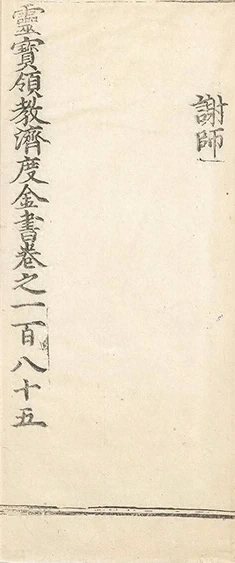 謝師
靈寶領教濟度金書卷之一百八十五